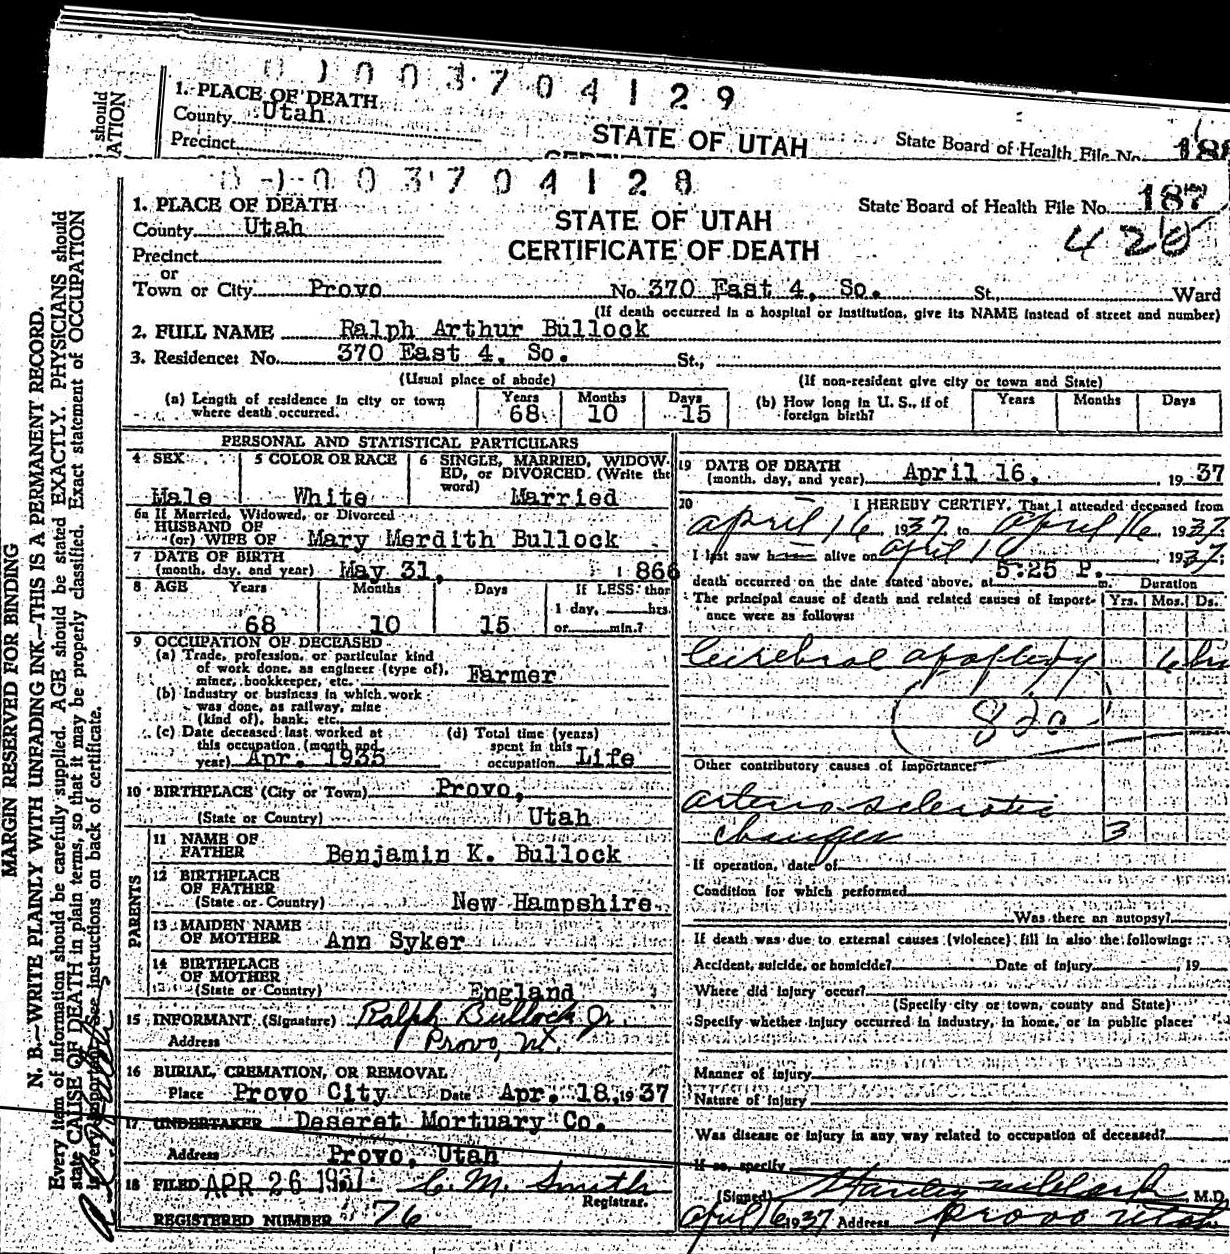 0 0 0 3 7 0 4 1 2 9
1. PLACE OF DEATH
County Utah
Precinct
STATE OF UTAH
State Board of Health File No. 188
should
ATION
0 0 0 3 7 0 4 1 2 8
1. PLACE OF DEATH
County Utah
Precinct
or
Town or City Provo No. 370 East 4, So. St., Ward
STATE OF UTAH
CERTIFICATE OF DEATH
State Board of Health File No. 187
420
(If death occurred in a hospital or institution, give its NAME instead of street and number)
2. FULL NAME Ralph Arthur Bullock
3. Residence: No. 370 East 4, So. St.,
(Usual place of abode) (If non-resident give city or town and State)
(a) Length of residence in city or town where death occurred. Years 68 Months 10 Days 15
(b) How long in U. S., if of foreign birth? Years Months Days
PERSONAL AND STATISTICAL PARTICULARS
4 SEX Male
5 COLOR OR RACE White
6 SINGLE, MARRIED, WIDOWED, or DIVORCED (Write the word) Married
6a If Married, Widowed, or Divorced
HUSBAND OF
(or) WIFE OF Mary Merdith Bullock
7 DATE OF BIRTH
(month, day, and year) May 31, 1866
8 AGE Years 68 Months 10 Days 15
If LESS than
1 day, hrs.
or min.?
9 OCCUPATION OF DECEASED
(a) Trade, profession, or particular kind
of work done, as engineer (type of),
miner, bookkeeper, etc. Farmer
(b) Industry or business in which work
was done, as railway, mine
(kind of), bank, etc.
(c) Date deceased last worked at
this occupation (month and
year) Apr. 1935
(d) Total time (years)
spent in this
occupation Life
10 BIRTHPLACE (City or Town) Provo,
(State or Country) Utah
PARENTS
11 NAME OF
FATHER Benjamin K. Bullock
12 BIRTHPLACE
OF FATHER
(State or Country) New Hampshire
13 MAIDEN NAME
OF MOTHER Ann Syker
14 BIRTHPLACE
OF MOTHER
(State or Country) England
15 INFORMANT (Signature) Ralph Bullock Jr.
Address Provo, Ut.
16 BURIAL, CREMATION, OR REMOVAL
Place Provo City Date Apr. 18, 1937
17 UNDERTAKER Deseret Mortuary Co.
Address Provo, Utah
18 FILED APR 26 1937 C. M. Smith
Registrar.
REGISTERED NUMBER 76
19 DATE OF DEATH
(month, day, and year) April 16, 1937
20 I HEREBY CERTIFY, That I attended deceased from
April 16 1937 to April 16 1937
I last saw h alive on April 16, 1937;
death occurred on the date stated above, at 5:25 P. m.
Duration
The principal cause of death and related causes of importance were as follows: Yrs. Mos. Ds.
Cerebral apoplexy 6 hrs
Other contributory causes of importance:
arterio sclerotic
changes 3
If operation, date of
Condition for which performed
Was there an autopsy?
If death was due to external causes (violence) fill in also the following:
Accident, suicide, or homicide? Date of injury , 19
Where did injury occur?
(Specify city or town, county and State)
Specify whether injury occurred in industry, in home, or in public place:
Manner of injury
Nature of injury
Was disease or injury in any way related to occupation of deceased?
If so, specify
(Signed) M.D.
April 16 1937 Address Provo Utah
MARGIN RESERVED FOR BINDING
N. B.—WRITE PLAINLY WITH UNFADING INK—THIS IS A PERMANENT RECORD.
Every item of information should be carefully supplied. AGE should be stated EXACTLY. PHYSICIANS should
state CAUSE OF DEATH in plain terms, so that it may be properly classified. Exact statement of OCCUPATION
is very important. See instructions on back of certificate.